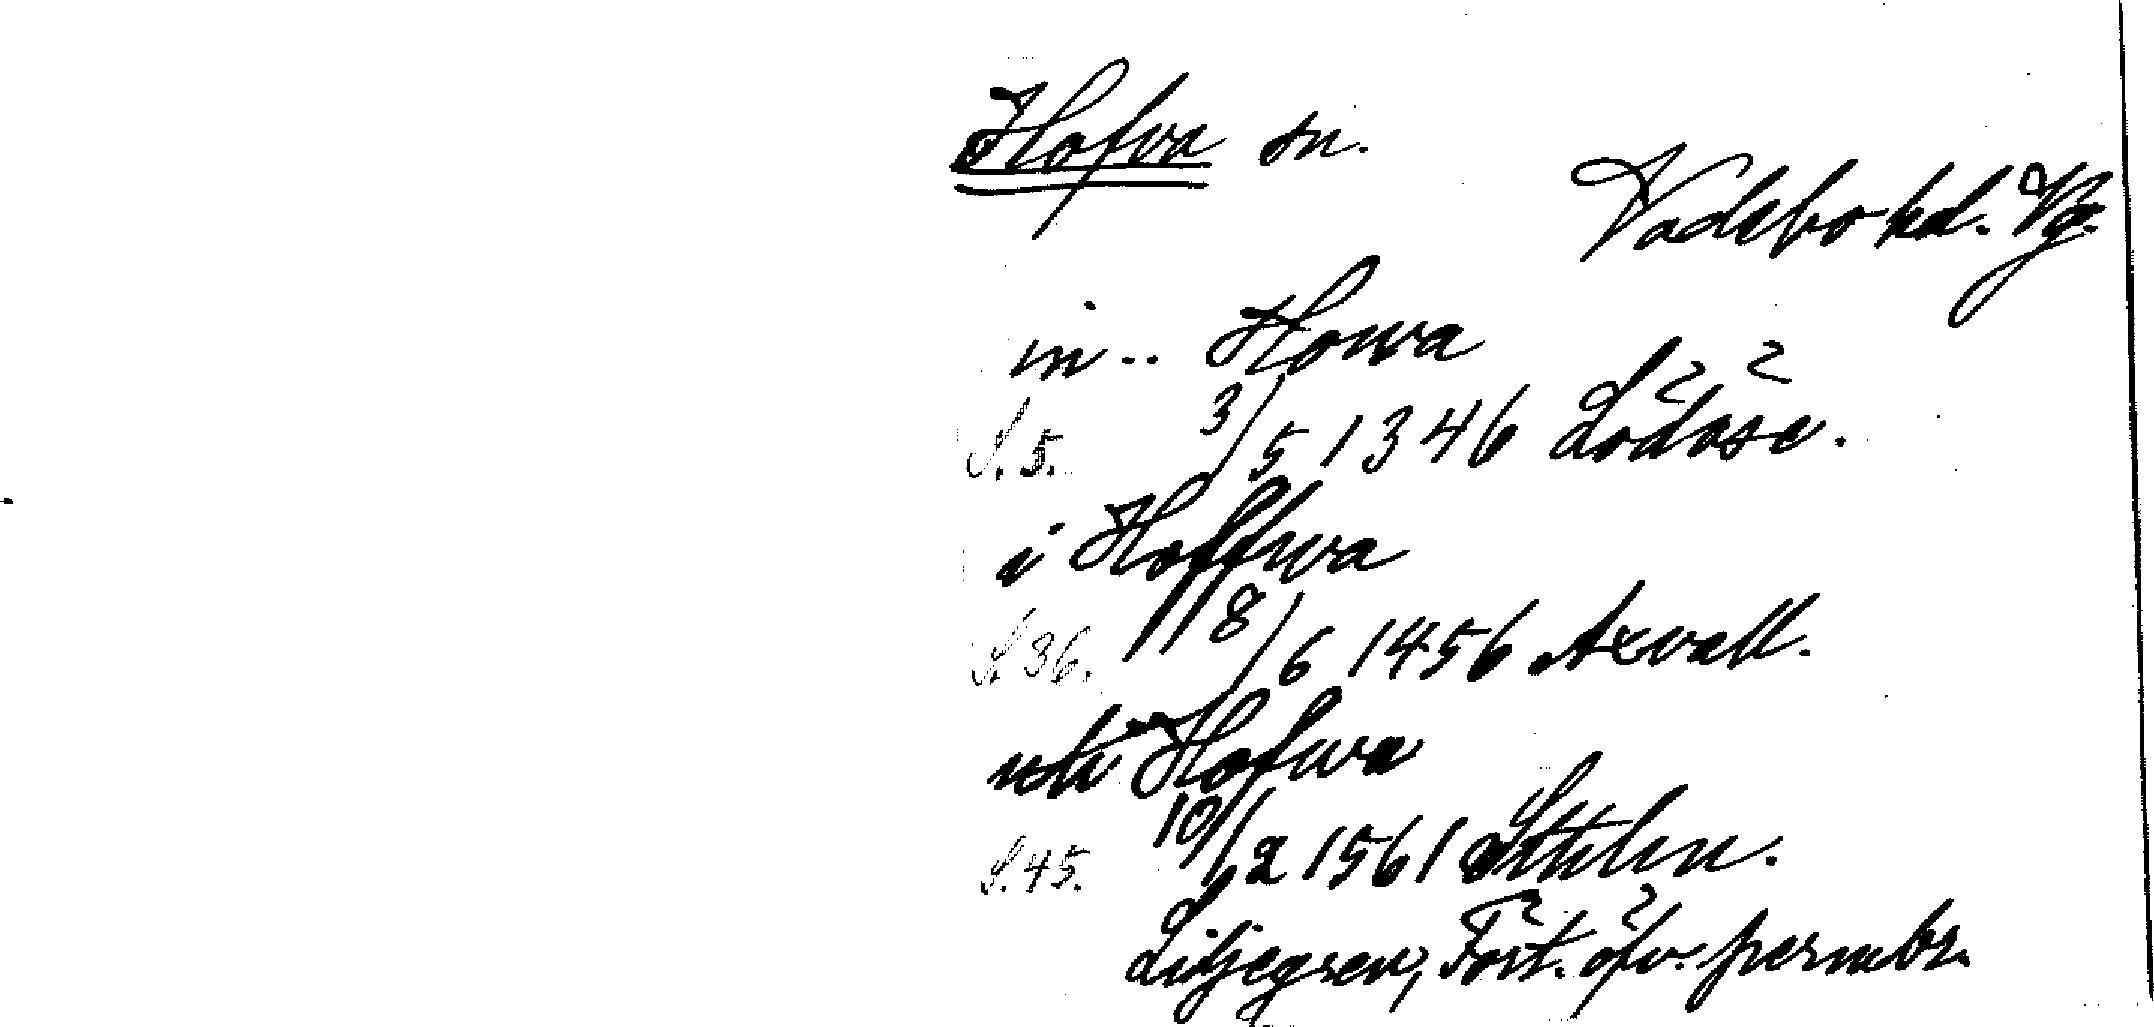 Hofva sn.
Vadsbo hd. Vg.
in .. Howa
S. 5. 3/5 1346 Lödöse.
i Hoffwa
S. 36. 18/6 1456 Axvall.
uti Hofwa
S. 45. 10/12 1561 Sthlm.
Liljegren, Fört. öfv. permbr.